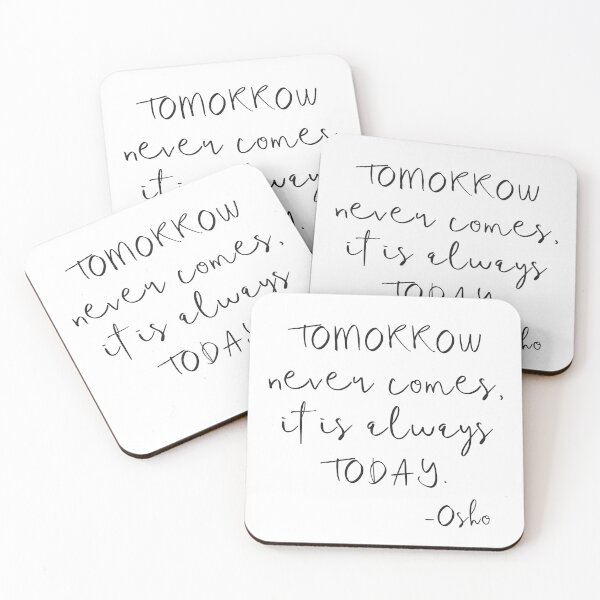 TOMORROW
never comes,
it is always
TOMORROW
never comes,
it is always
TODAY
TOMORROW
never comes,
it is always
TODAY
TOMORROW
never comes,
it is always
TODAY.
-Osho